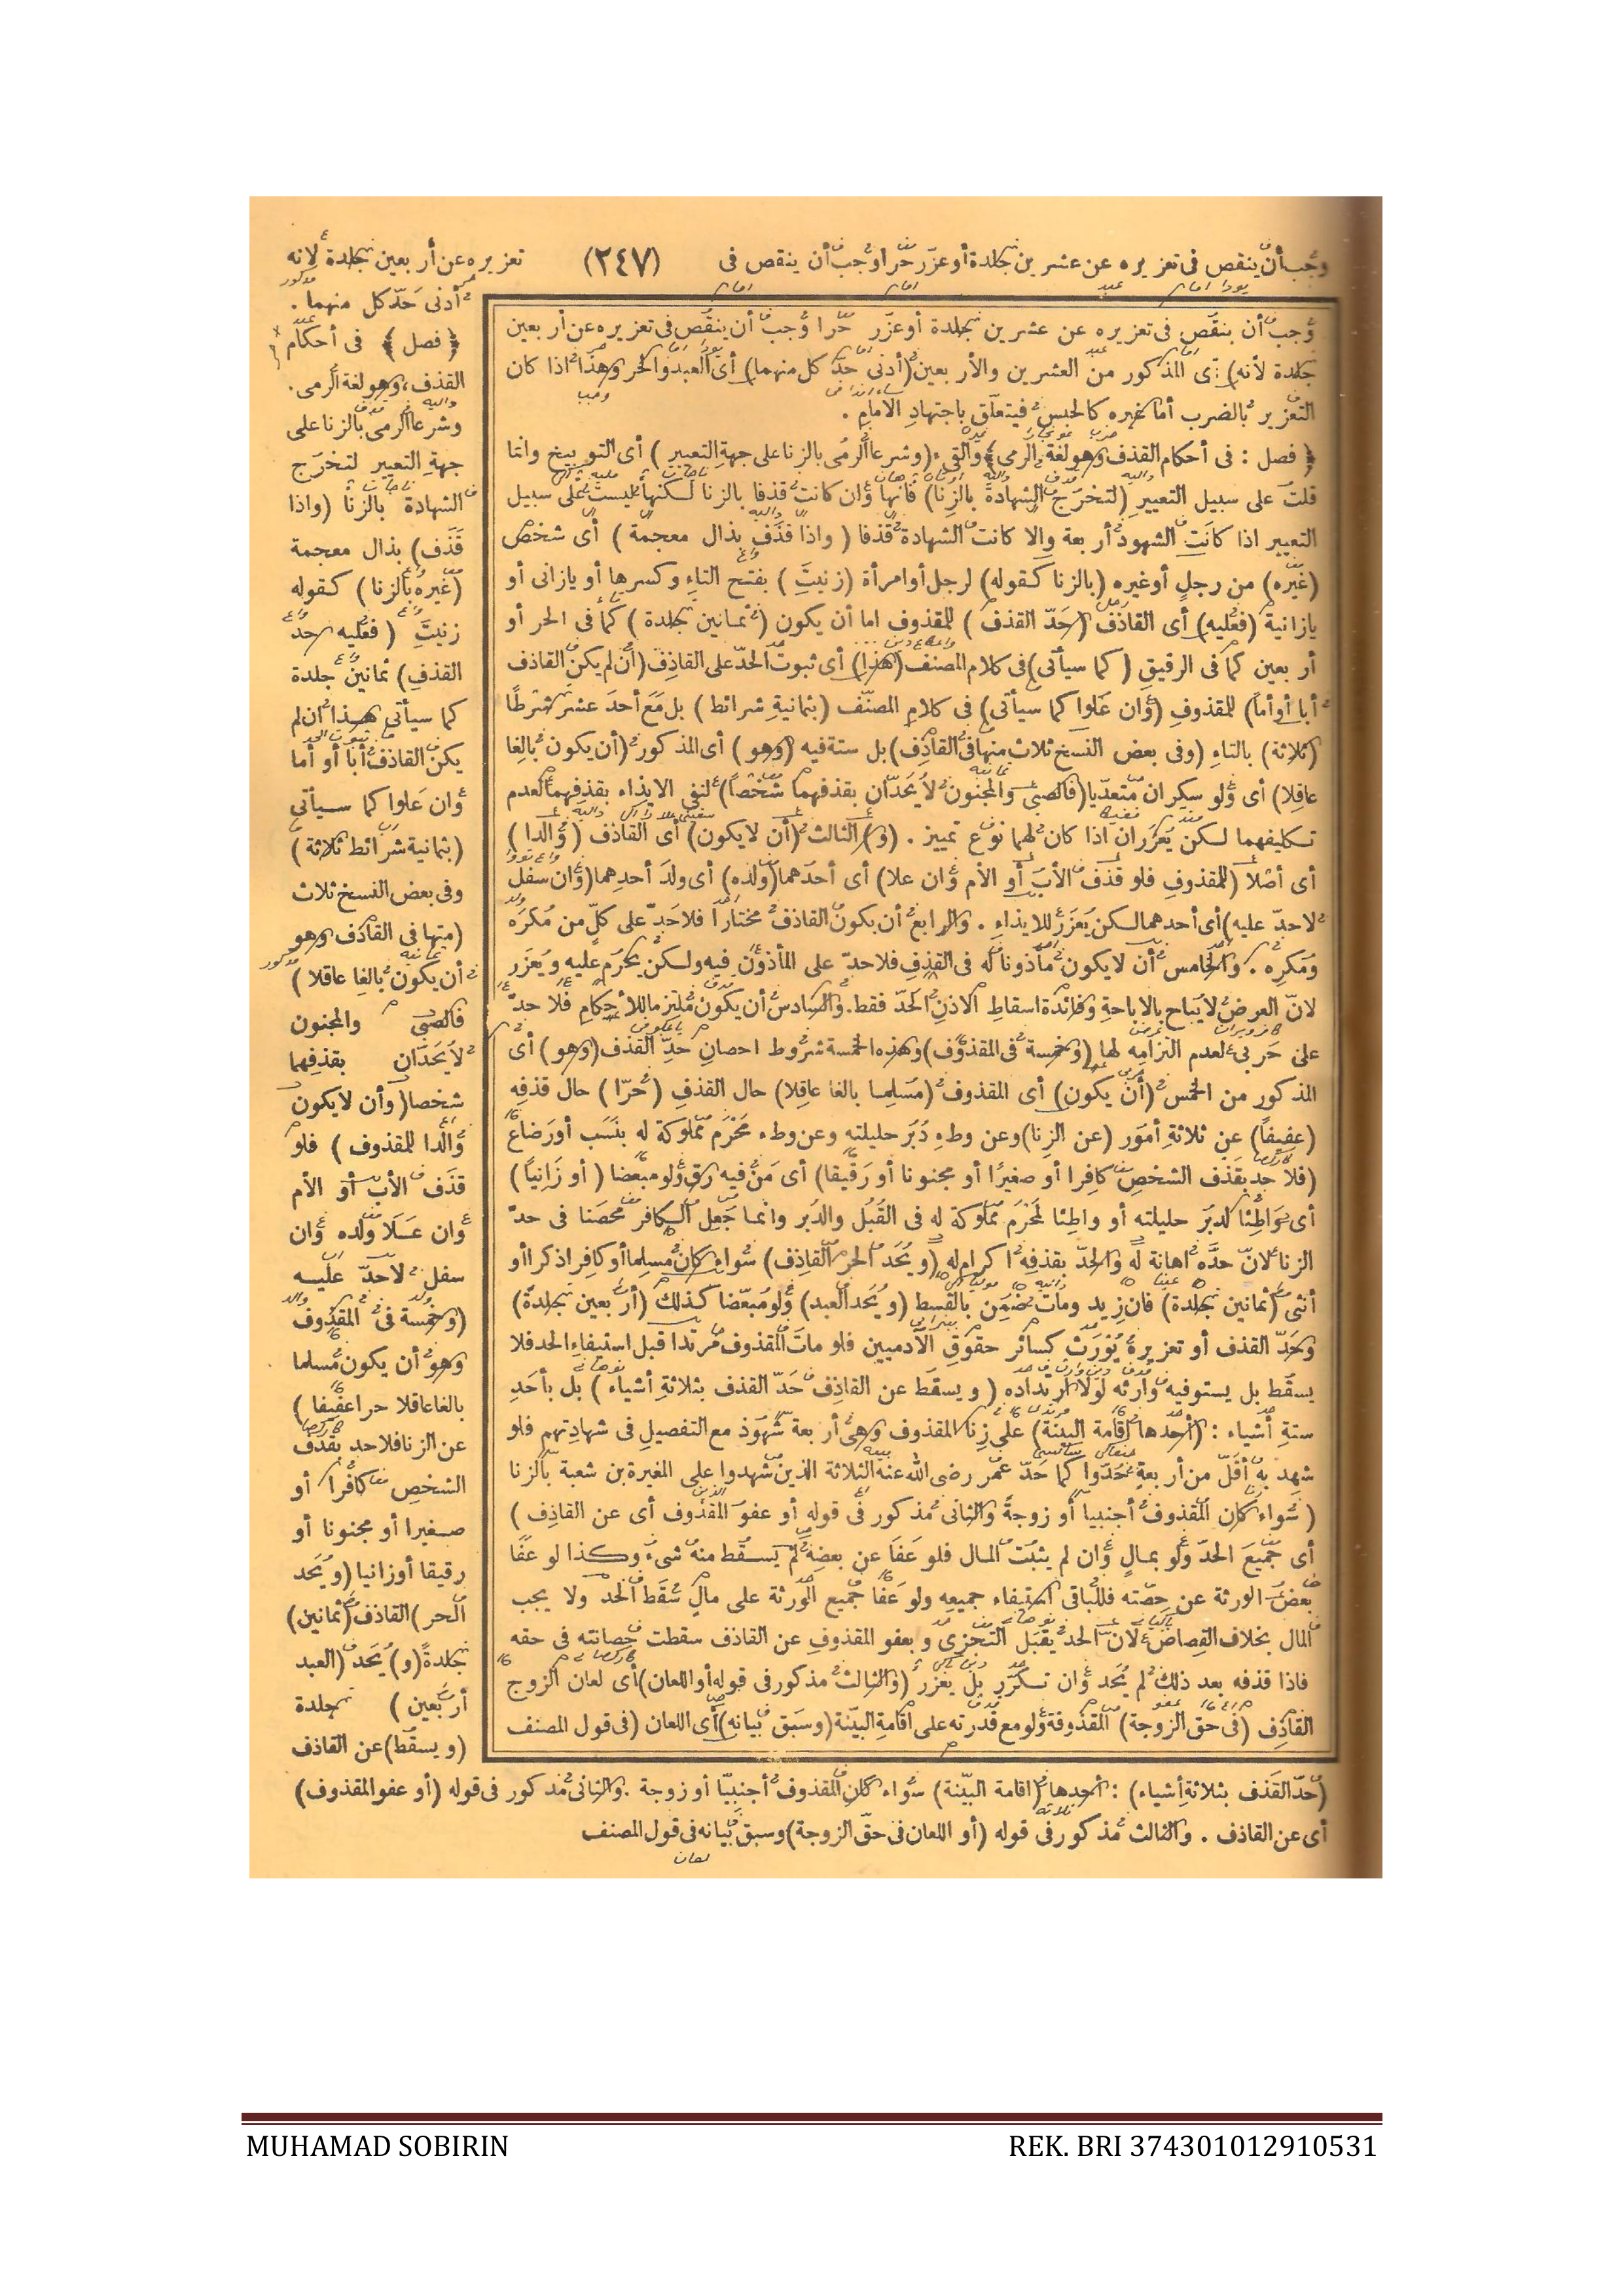 وجب أن ينقص فى تعزيره عن عشرين جلدة أو عزر حرا وجب أن ينقص فى (٢٤٧) تعزيره عن أربعين جلدة لأنه
أدنى حد كل منهما .
﴿ فصل ﴾ فى أحكام
القذف، وهو لغة الرمى .
وشرعا الرمى بالزنا على
جهة التعيير لتخرج
الشهادة بالزنا (واذا
قذف) بذال معجمة
(غيره بالزنا) كقوله
زنيت (فعليه حد
القذف) ثمانين جلدة
كما سيأتى هذا ان لم
يكن القاذف أبا أو أما
وان علوا كما سيأتى
(بثمانية شرائط ثلاثة)
وفى بعض النسخ ثلاث
(منها فى القاذف وهو
أن يكون بالغا عاقلا)
فالصبى والمجنون
لا يحدان بقذفهما
شخصا (وأن لا يكون
والدا للمقذوف) فلو
قذف الأب أو الأم
وان علا ولده وان
سفل لا حد عليه
(وخمسة فى المقذوف
وهو أن يكون مسلما
بالغا عاقلا حرا عفيفا)
عن الزنا فلا حد بقذف
الشخص كافرا أو
صغيرا أو مجنونا أو
رقيقا أو زانيا (ويحد
الحر) القاذف (ثمانين)
جلدة (و) يحد (العبد
أربعين) جلدة
(ويسقط) عن القاذف
وجب أن ينقص فى تعزيره عن عشرين جلدة أو عزر حرا وجب أن ينقص فى تعزيره عن أربعين
جلدة لأنه) أى المذكور من العشرين والأربعين (أدنى حد كل منهما) أى العبد والحر وهذا اذا كان
التعزير بالضرب أما غيره كالحبس فيتعلق باجتهاد الامام .
﴿ فصل : فى أحكام القذف وهو لغة الرمى ﴾ والقىء (وشرعا الرمى بالزنا على جهة التعيير) أى التوبيخ وانما
قلت على سبيل التعيير (لتخرج الشهادة بالزنا) فانها وان كانت قذفا بالزنا لكنها ليست على سبيل
التعيير اذا كانت الشهود أربعة والا كانت الشهادة قذفا (واذا قذف بذال معجمة) أى شخص
(غيره) من رجل أو غيره (بالزنا كقوله) لرجل أو امرأة (زنيت) بفتح التاء وكسرها أو يازانى أو
يازانية (فعليه) أى القاذف (حد القذف) للمقذوف اما أن يكون (ثمانين جلدة) كما فى الحر أو
أربعين كما فى الرقيق (كما سيأتى) فى كلام المصنف (هذا) أى ثبوت الحد على القاذف (ان لم يكن القاذف
أبا أو أما) للمقذوف (وان علوا كما سيأتى) فى كلام المصنف (بثمانية شرائط) بل مع أحد عشر شرطا
(ثلاثة) بالتاء (وفى بعض النسخ ثلاث منها فى القاذف) بل ستة فيه (وهو) أى المذكور (أن يكون بالغا
عاقلا) أى ولو سكران متعديا (فالصبى والمجنون لا يحدان بقذفهما شخصا) لنفى الايذاء بقذفهما لعدم
تكليفهما لكن يعزران اذا كان لهما نوع تمييز . (و) الثالث (أن لا يكون) أى القاذف (والدا)
أى أصلا (للمقذوف فلو قذف الأب أو الأم وان علا) أى أحدهما (ولده) أى ولد أحدهما (وان سفل
لا حد عليه) أى أحدهما لكن يعزر للايذاء . والرابع أن يكون القاذف مختارا فلا حد على كل من مكره
ومكره . والخامس أن لا يكون مأذونا له فى القذف فلا حد على المأذون فيه ولكن يحرم عليه ويعزر
لان العرض لا يباح بالاباحة وفائدة اسقاط الاذن الحد فقط. والسادس أن يكون ملتزما للأحكام فلا حد
على حربى لعدم التزامه لها (وخمسة فى المقذوف) وهذه الخمسة شروط احصان حد القذف (وهو) أى
المذكور من الخمس (أن يكون) أى المقذوف (مسلما بالغا عاقلا) حال القذف (حرا) حال قذفه
(عفيفا) عن ثلاثة أمور (عن الزنا) وعن وطء دبر حليلته وعن وطء محرم مملوكة له بنسب أو رضاع
(فلا حد بقذف الشخص كافرا أو صغيرا أو مجنونا أو رقيقا) أى من فيه رق ولو مبعضا (أو زانيا)
أى واطئا لدبر حليلته أو واطئا لمحرم مملوكة له فى القبل والدبر وانما جعل الكافر محصنا فى حد
الزنا لان حده اهانة له والحد بقذفه اكرام له (ويحد الحر القاذف) سواء كان مسلما أو كافرا ذكرا أو
أنثى (ثمانين جلدة) فان زيد ومات ضمن بالقسط (ويحد العبد) ولو مبعضا كذلك (أربعين جلدة)
وحد القذف أو تعزيره يورث كسائر حقوق الآدميين فلو مات المقذوف مرتدا قبل استيفاء الحد فلا
يسقط بل يستوفيه وارثه لولا ارتداده (ويسقط عن القاذف حد القذف بثلاثة أشياء) بل بأحد
ستة أشياء : (أحدها اقامة البينة) على زنا المقذوف وهى أربعة شهود مع التفصيل فى شهادتهم فلو
شهد به أقل من أربعة حدوا كما حد عمر رضى الله عنه الثلاثة الذين شهدوا على المغيرة بن شعبة بالزنا
(سواء كان المقذوف أجنبيا أو زوجة والثانى مذكور فى قوله أو عفو المقذوف أى عن القاذف)
أى جميع الحد ولو بمال وان لم يثبت المال فلو عفا عن بعضه لم يسقط منه شىء وكذا لو عفا
بعض الورثة عن حصته فللباقى استيفاء جميعه ولو عفا جميع الورثة على مال سقط الحد ولا يجب
المال بخلاف القصاص لان الحد يقبل التجزى وبعفو المقذوف عن القاذف سقطت حصانته فى حقه
فاذا قذفه بعد ذلك لم يحد وان تكرر بل يعزر (والثالث مذكور فى قوله أو اللعان) أى لعان الزوج
القاذف (فى حق الزوجة) المقذوفة ولو مع قدرته على اقامة البينة (وسبق بيانه) أى اللعان (فى قول المصنف
(حد القذف بثلاثة أشياء) : أحدها (اقامة البينة) سواء كان المقذوف أجنبيا أو زوجة . والثانى مذكور فى قوله (أو عفو المقذوف)
أى عن القاذف . والثالث مذكور فى قوله (أو اللعان فى حق الزوجة) وسبق بيانه فى قول المصنف
MUHAMAD SOBIRIN REK. BRI 374301012910531